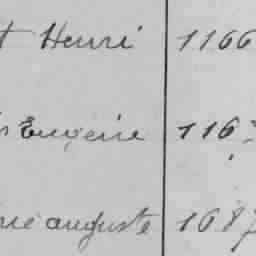 Henri 1166
Eugénie 116
auguste 1687